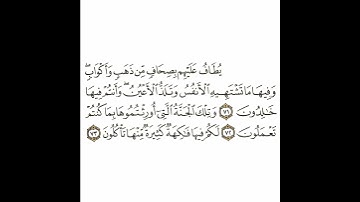 يُطَافُ عَلَيْهِم بِصِحَافٍ مِّن ذَهَبٍ وَأَكْوَابٍ ۖ
وَفِيهَا مَا تَشْتَهِيهِ الْأَنفُسُ وَتَلَذُّ الْأَعْيُنُ ۖ وَأَنتُمْ فِيهَا
خَالِدُونَ ﴿٧١﴾ وَتِلْكَ الْجَنَّةُ الَّتِي أُورِثْتُمُوهَا بِمَا كُنتُمْ
تَعْمَلُونَ ﴿٧٢﴾ لَكُمْ فِيهَا فَاكِهَةٌ كَثِيرَةٌ مِّنْهَا تَأْكُلُونَ ﴿٧٣﴾